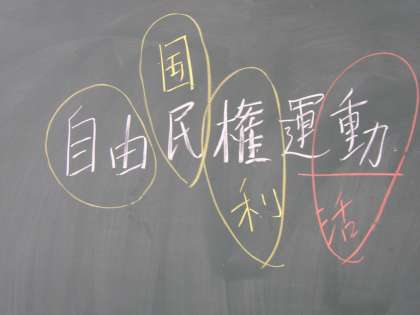 国
自由民権運動
利
活